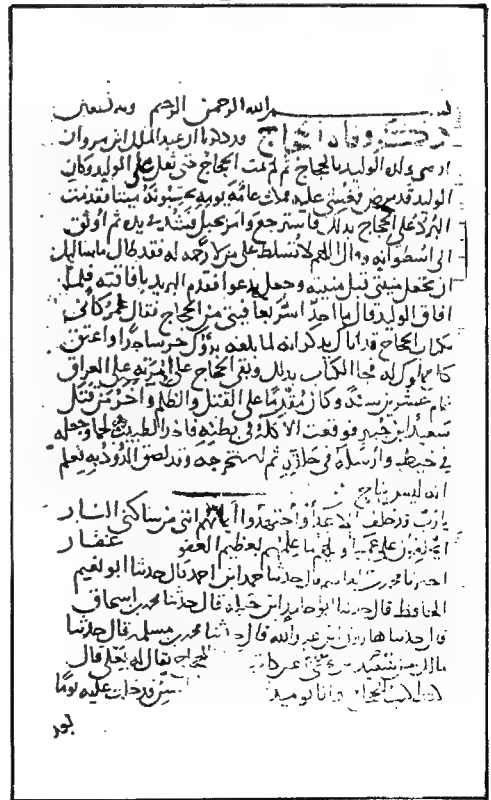 بسم الله الرحمن الرحيم وبه نستعين
وفاة الحجاج ورد ان عبد الملك ابن مروان
اوصى ولده الوليد بالحجاج ثم لم يمت الحجاج حتى ثقل على الوليد وكان
الوليد قد مرض فغشى عليه فمكث عامة يومه يحسبونه ميتا فقدمت
البرد على الحجاج بذلك فاسترجع وامر بحبل فشد في يده ثم اوثق
الى اسطوانه وقال اللهم لا تسلط على من لا رحمة له فقد طال ما سالتك
ان تجعل منيتي قبل منيته وجعل يدعوا فقدم البريد بافاقته فلما
افاق الوليد قال ما احد اسر بعافيتي من الحجاج فقال عمر كاني
بكتاب الحجاج قد اتاك يذكر انه لما بلغه برؤك خر ساجدا واعتق
كل مملوك له فجا الكتاب بذلك وبقى الحجاج على امرته على العراق
تمام عشرين سنة وكان مقدما على القتل والظلم واخر من قتل
سعيد ابن جبير فوقعت الاكلة في بطنه فاخذ الطبيب لحما وجعله
في خيط وارسله في حلقه ثم استخرجه وقد لصق الدود به فعلم
انه ليس بناج
يا رب قد حلف الاعداء واجتهدوا ايمانهم انني من ساكني النار
ايحلفون على عميا ويلهم ما علمهم بعظيم العفو غفار
اخبرنا محمد قال حدثنا حمد ابن احمد قال حدثنا ابو نعيم
الحافظ قال حدثنا ابو حامد ابن جبلة قال حدثنا محمد بن اسحاق
قال حدثنا هارون ابن عبد الله قال حدثنا محمد بن مسلمه قال حدثنا
مالك يحيى بن سعيد عن كاتب الحجاج يقال له يعلى قال
كنت اكتب للحجاج وانا يوميذ السن فدخلت عليه يوما
بعد